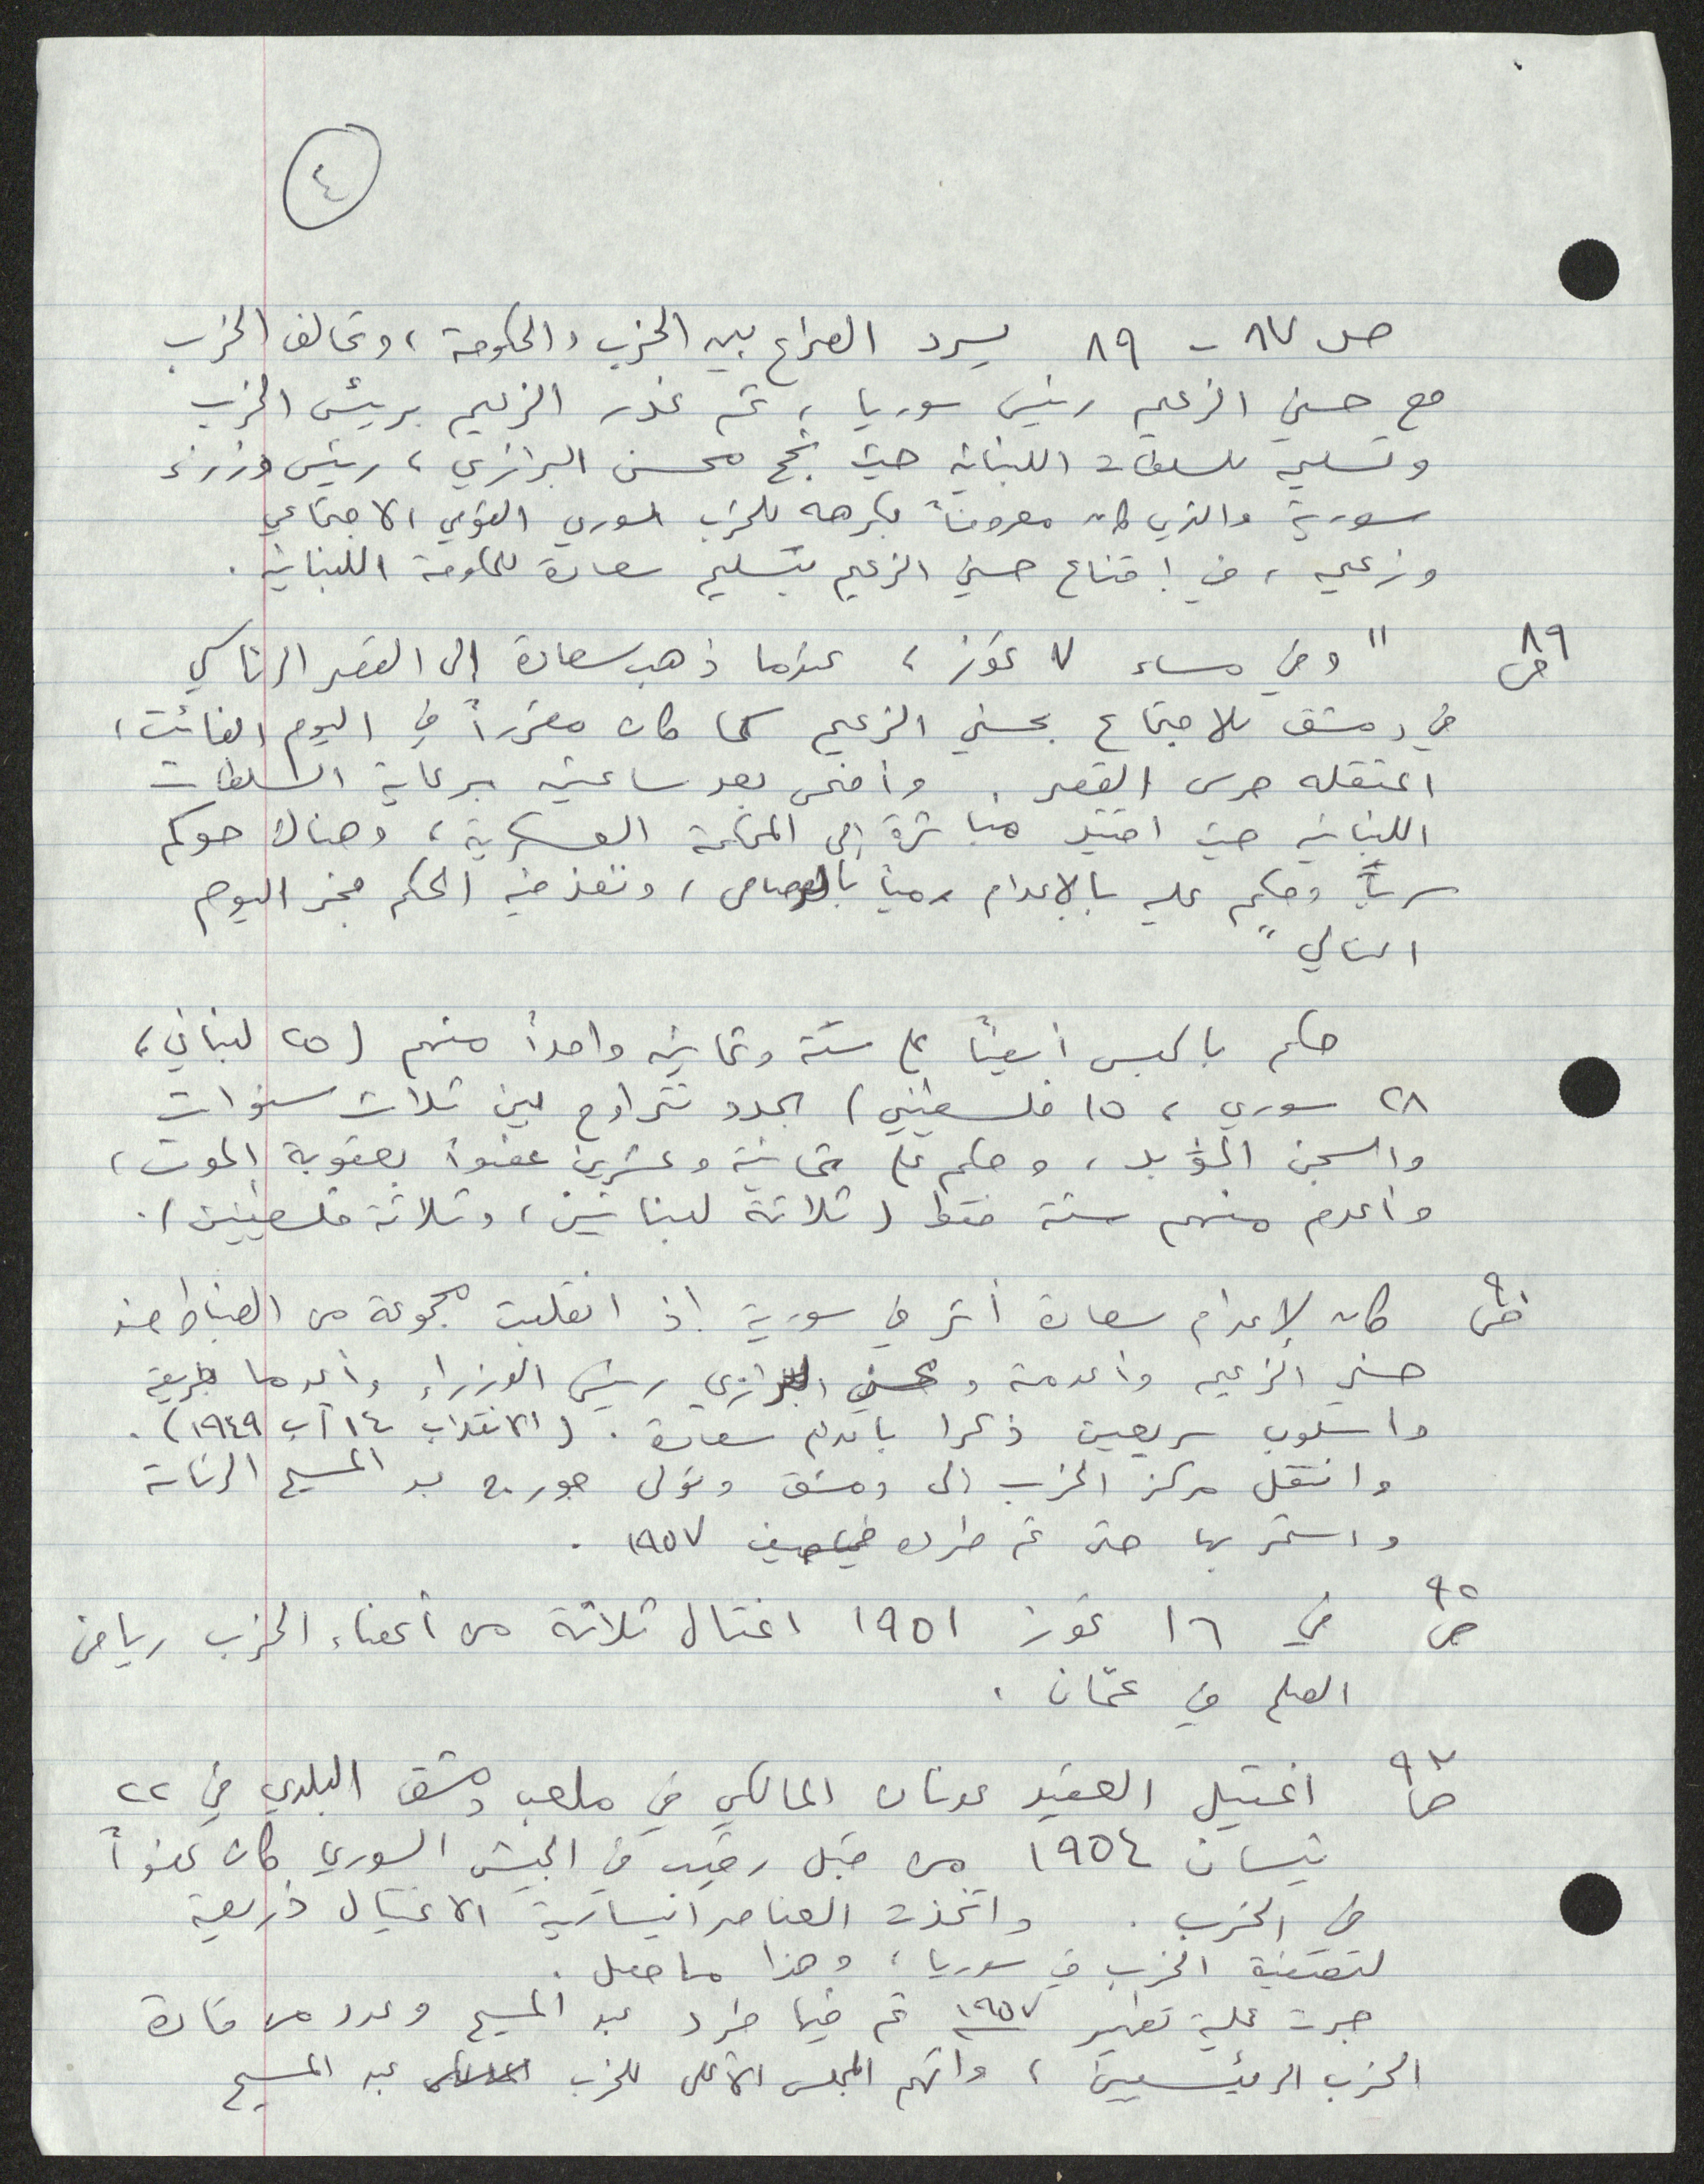 ٤
ص ٨٧ - ٨٩ يسرد الصراع بين الحزب والحكومة ، وتحالف الحزب
مع حسني الزعيم رئيس سوريا ، ثم غدر الزعيم برئيس الحزب
وتسليمه للسلطات اللبنانية حيث نجح محسن البرازي ، رئيس وزراء
سورية والذي كان معروفاً بكرهه للحزب السوري القومي الاجتماعي
وزعيمه ، في إقناع حسني الزعيم بتسليم سعادة للحكومة اللبنانية .
ص ٨٩ " وفي مساء ٧ تموز ، عندما ذهب سعادة إلى القصر الرئاسي
في دمشق للاجتماع بحسني الزعيم كما كان مقرراً في اليوم الفائت ،
اعتقله حرس القصر . وأضحى بعد ساعتين برعاية السلطات
اللبنانية حيث اقتيد مباشرة إلى المحكمة العسكرية ، وهناك حوكم
سرياً وحكم عليه بالإعدام رمياً بالرصاص ، ونفذ فيه الحكم فجر اليوم
التالي "
حكم بالحبس أيضاً على ستة وثمانين واحداً منهم ( ٢٥ لبناني ،
٢٨ سوري ، ١٥ فلسطيني ) لمدد تتراوح بين ثلاث سنوات
والسجن المؤبد ، وحكم على ثمانية وعشرين عضواً بعقوبة الموت ،
وأعدم منهم ستة فقط ( ثلاثة لبنانيين ، وثلاثة فلسطينيين ) .
ص ٩٠ كان لإعدام سعادة أثر في سورية إذ انقلبت مجموعة من الضباط ضد
حسني الزعيم وأعدمته و محسن البرازي رئيس الوزراء وأعدما بطريقة
وأسلوب سريعين ذكرا بإعدام سعادة . ( الانقلاب ١٤ آب ١٩٤٩ ) .
وانتقل مركز الحزب إلى دمشق وتولى جورج عبد المسيح الرئاسة
واستمر بها حتى تم طرده في صيف ١٩٥٧ .
ص ٩٢ في ١٦ تموز ١٩٥١ اغتال ثلاثة من أعضاء الحزب رياض
الصلح في عمّان .
ص ٩٣ اغتيل العقيد عدنان المالكي في ملعب دمشق البلدي في ٢٢
نيسان ١٩٥٤ من قبل رقيب في الجيش السوري كان عضواً
في الحزب . واتخذت العناصر اليسارية الاغتيال ذريعة
لتصفية الحزب في سوريا ، وهذا ما حصل .
جرت عملية تطهير ١٩٥٧ تم فيها طرد عبد المسيح وعدد من قادة
الحزب الرئيسيين ، واتهم المجلس الأعلى للحزب عبد المسيح